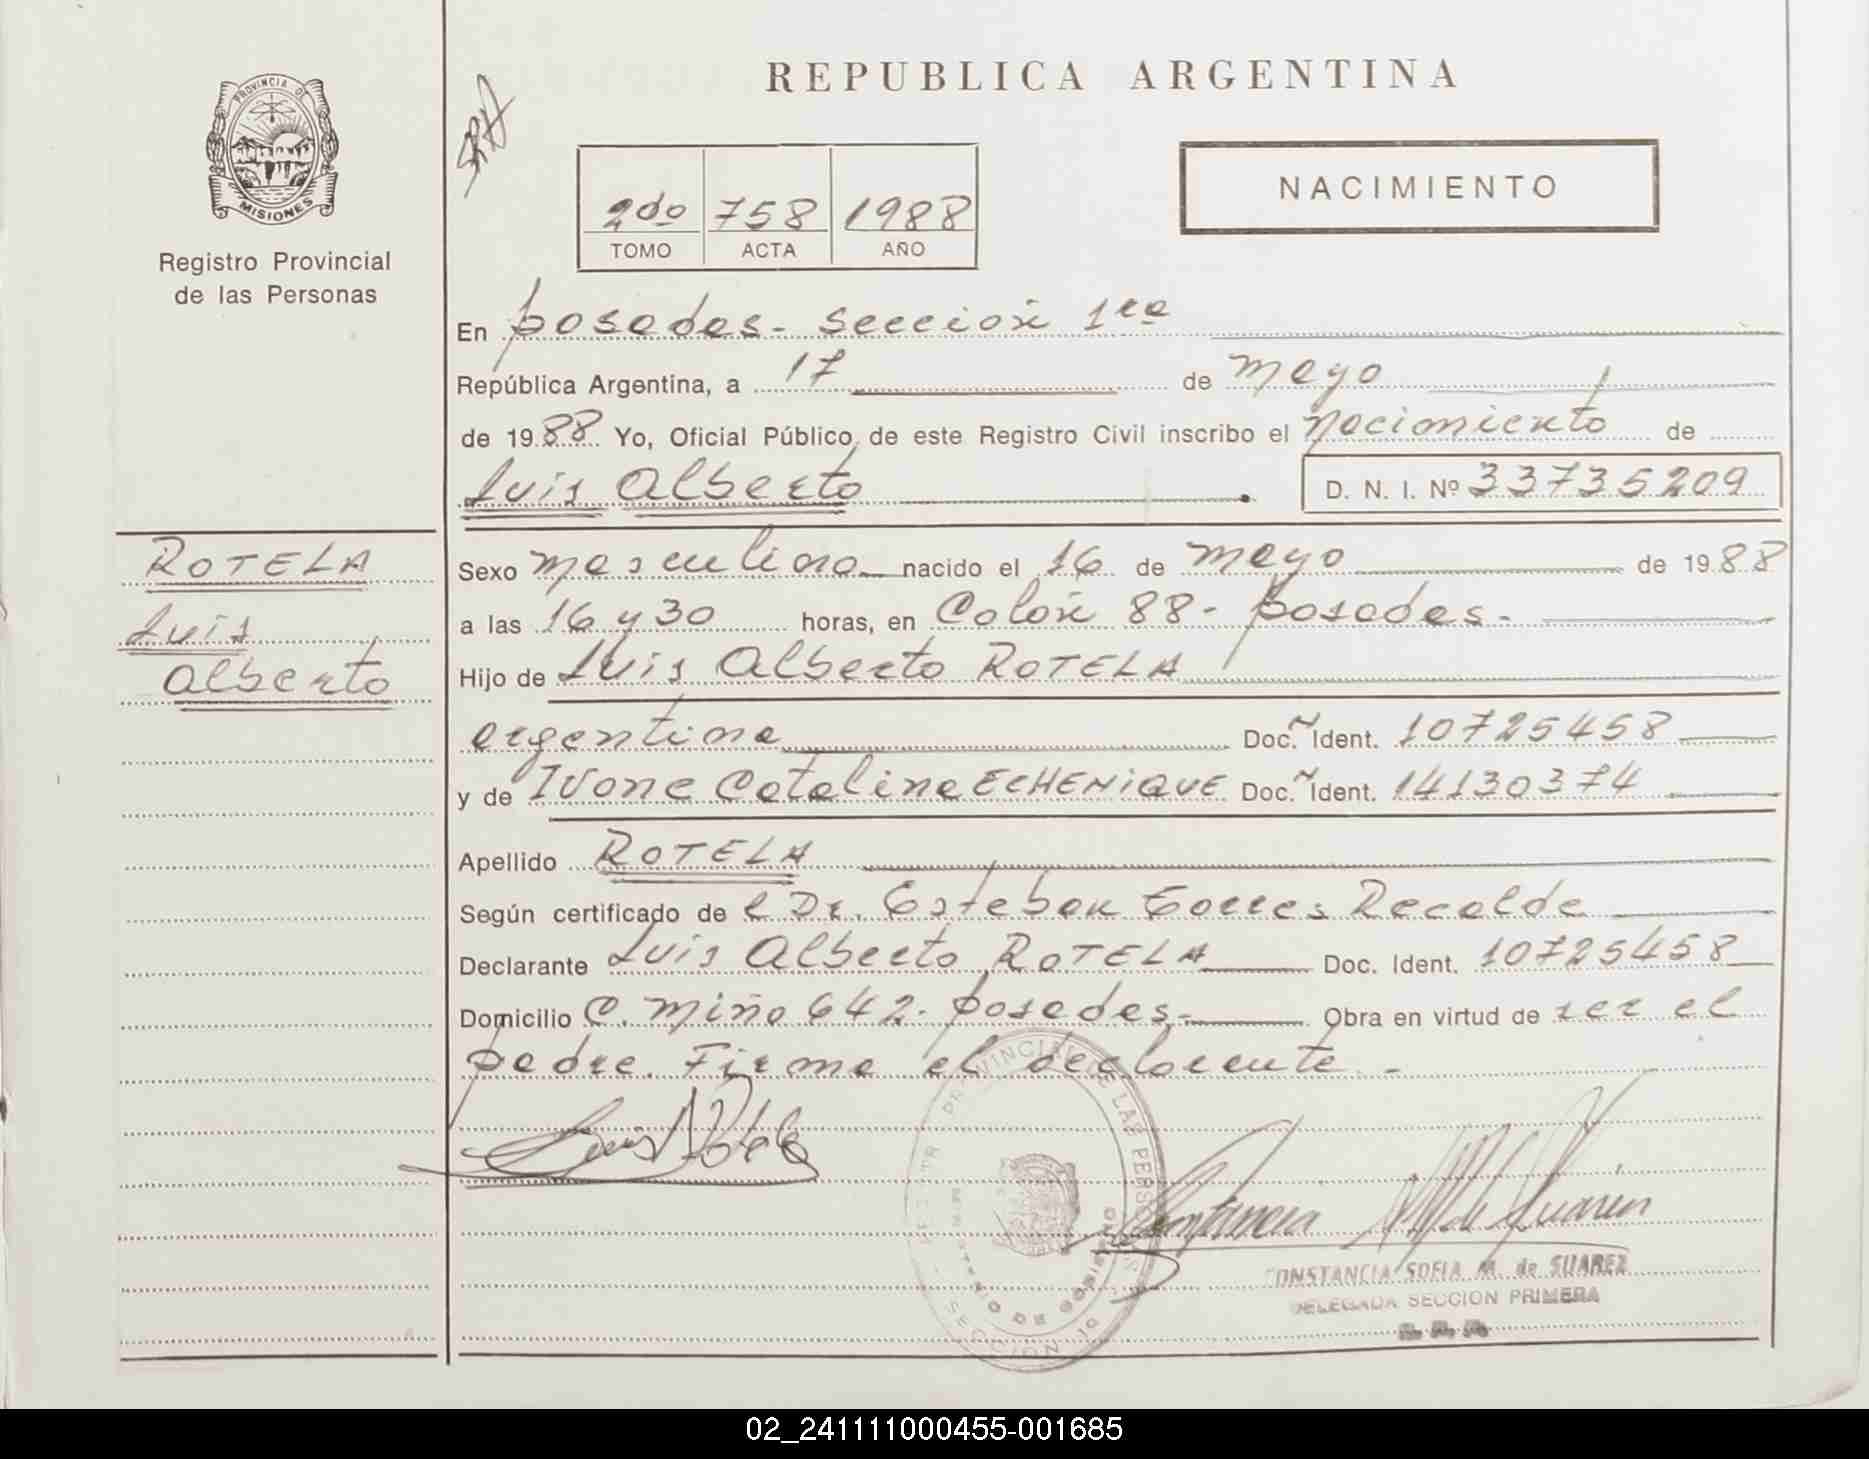 REPUBLICA ARGENTINA
PROVINCIA DE
MISIONES
Registro Provincial
de las Personas
2do 758 1988
TOMO ACTA AÑO
NACIMIENTO
En posadas - Sección 1ra
República Argentina, a 17 de mayo
de 1988 Yo, Oficial Público de este Registro Civil inscribo el nacimiento de
Luis Alberto
D. N. I. Nº 33735209
ROTELA
Luis
Alberto
Sexo masculino nacido el 16 de mayo de 1988
a las 16 y 30 horas, en Colón 88 - posadas -
Hijo de Luis Alberto ROTELA
argentina Doc. Ident. 10725458
y de Ivone Catalina ECHENIQUE Doc. Ident. 14130374
Apellido ROTELA
Según certificado de l Dr. Esteban Torres Recalde
Declarante Luis Alberto ROTELA Doc. Ident. 10725458
Domicilio C. Miño 642 - posadas - Obra en virtud de ser el
padre. Firma el declarante -
Luis Rotela
PROVINCIAL DE LAS PERSONAS
MINISTERIO DE GOBIERNO
SECCION 1a
Constancia M de Suarez
CONSTANCIA SOFIA M. de SUAREZ
DELEGADA SECCION PRIMERA
02_241111000455-001685